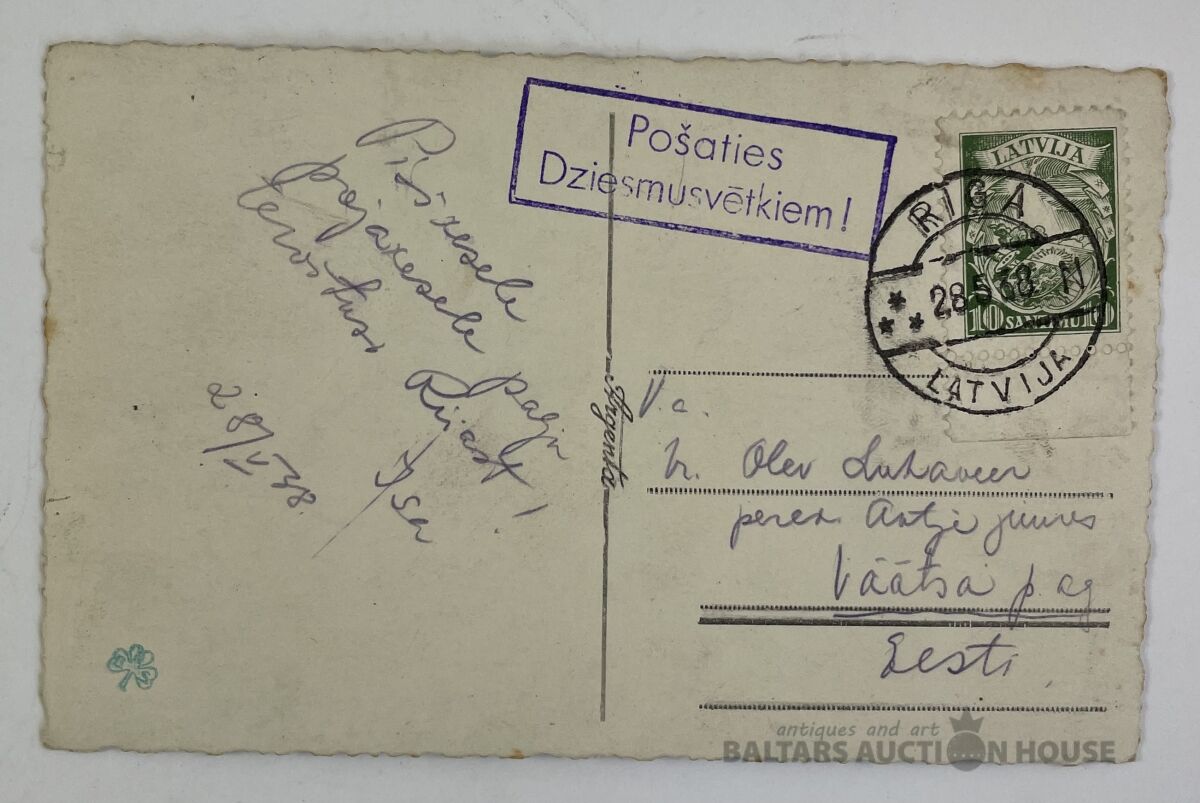 Pošaties
Dziesmusvētkiem!
LATVIJA
10 SANTĪMU 10
RĪGA
28 5 38 N
LATVIJA
palju
tervitusi Riiast!
Isa
28/V 38
Argenta
V.a.
hr. Olev Luhaveer
peren. Antje juures
Väätsa pag
Eesti
antiques and art
BALTARS AUCTION HOUSE